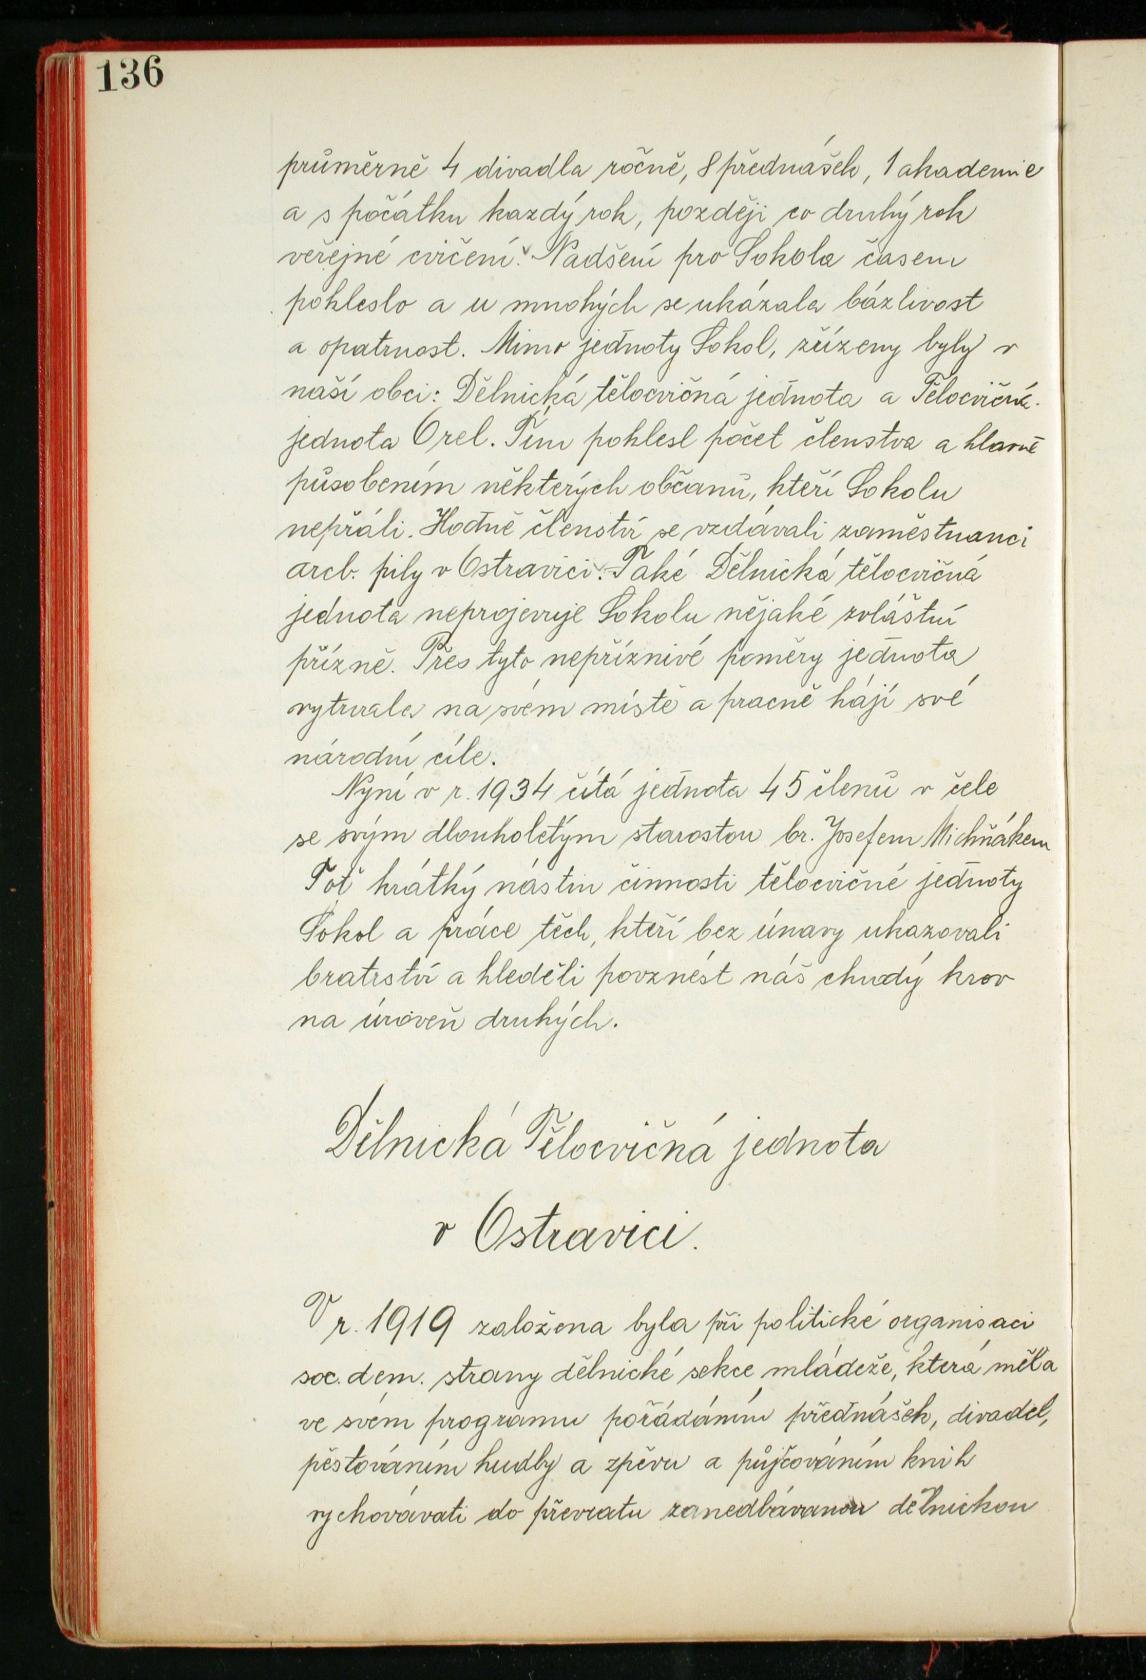 136
průměrně 4 divadla ročně, 8 přednášek, 1 akademie
a s počátku každý rok, později co druhý rok
veřejné cvičení. Nadšení pro Sokola časem
pohleslo a u mnohých se ukázala bázlivost
a opatrnost. Mimo jednoty Sokol, zřízeny byly v
naší obci: Dělnická tělocvičná jednota a Tělocvičná
jednota Orel. Tím pohlesl počet členstva a hlavně
působením některých občanů, kteří Sokolu
nepřáli. Hodně členství se vzdávali zaměstnanci
arcb. pily v Ostravici. Také Dělnická tělocvičná
jednota neprojevuje Sokolu nějaké zvláštní
přízně. Přes tyto nepříznivé poměry jednota
vytrvala na svém místě a pracně hájí své
národní cíle.
Nyní v r. 1934 čítá jednota 45 členů v čele
se svým dlouholetým starostou br. Josefem Michňákem
Toť krátký nástin činnosti tělocvičné jednoty
Sokol a práce těch, kteří bez únavy ukazovali
bratrství a hleděli povznést náš chudý krov
na úroveň druhých.
Dělnická Tělocvičná jednota
v Ostravici.
V r. 1919 založena byla při politické organisaci
soc. dem. strany dělnické sekce mládeže, která měla
ve svém programu pořádáním přednášek, divadel,
pěstováním hudby a zpěvu a půjčováním knih
vychovávati do převratu zanedbávanou dělnickou